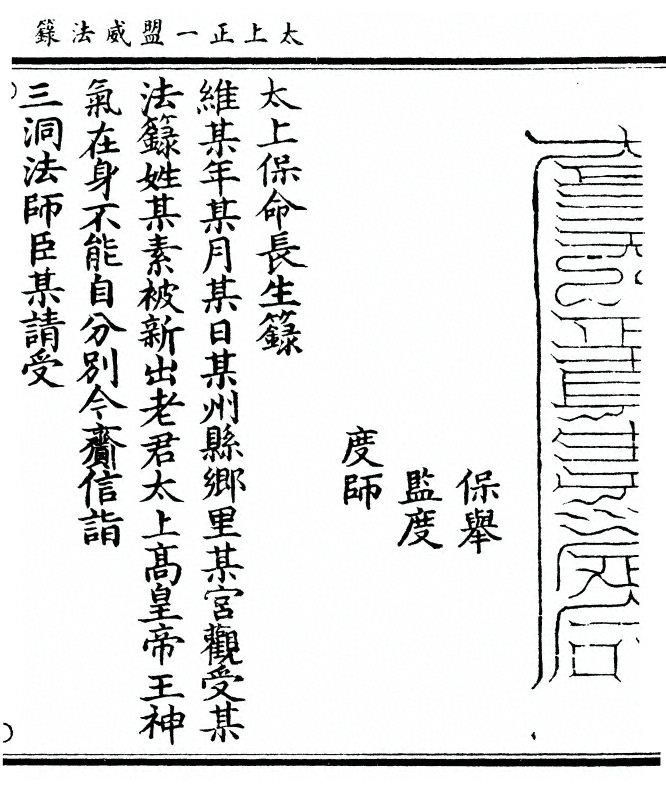 太上正一盟威法籙
保舉
監度
度師
太上保命長生籙
維某年某月某日某州縣鄉里某宮觀受某
法籙姓某素被新出老君太上高皇帝王神
氣在身不能自分別今齎信詣
三洞法師臣某請受